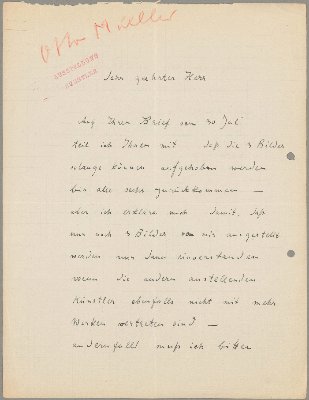 Otto Mueller
AUSSTELLUNG
KÜNSTLER
Sehr geehrter Herr
Auf Ihren Brief vom 30 Juli
teil ich Ihnen mit daß die 3 Bilder
solange können aufgehoben werden
bis alle sechs zurückkommen —
aber ich erkläre mich damit, daß
nur noch 3 Bilder von mir ausgestellt
werden nur dann einverstanden
wenn die andern ausstellenden
Künstler ebenfalls nicht mit mehr
Werken vertreten sind —
andernfalls muß ich bitten